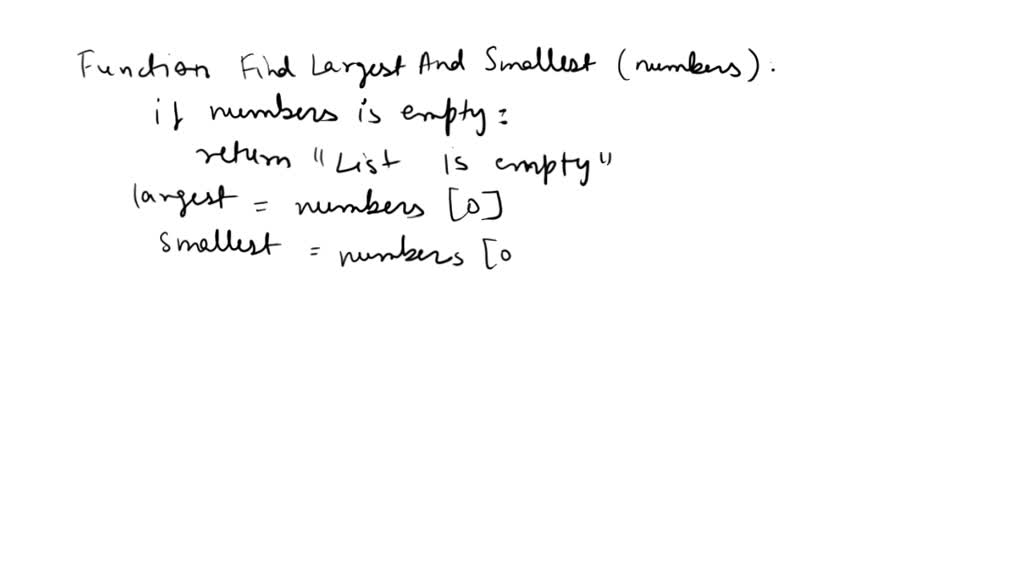 Function Find Largest And Smallest (numbers):
if numbers is empty:
return "List is empty"
largest = numbers [0]
smallest = numbers [0